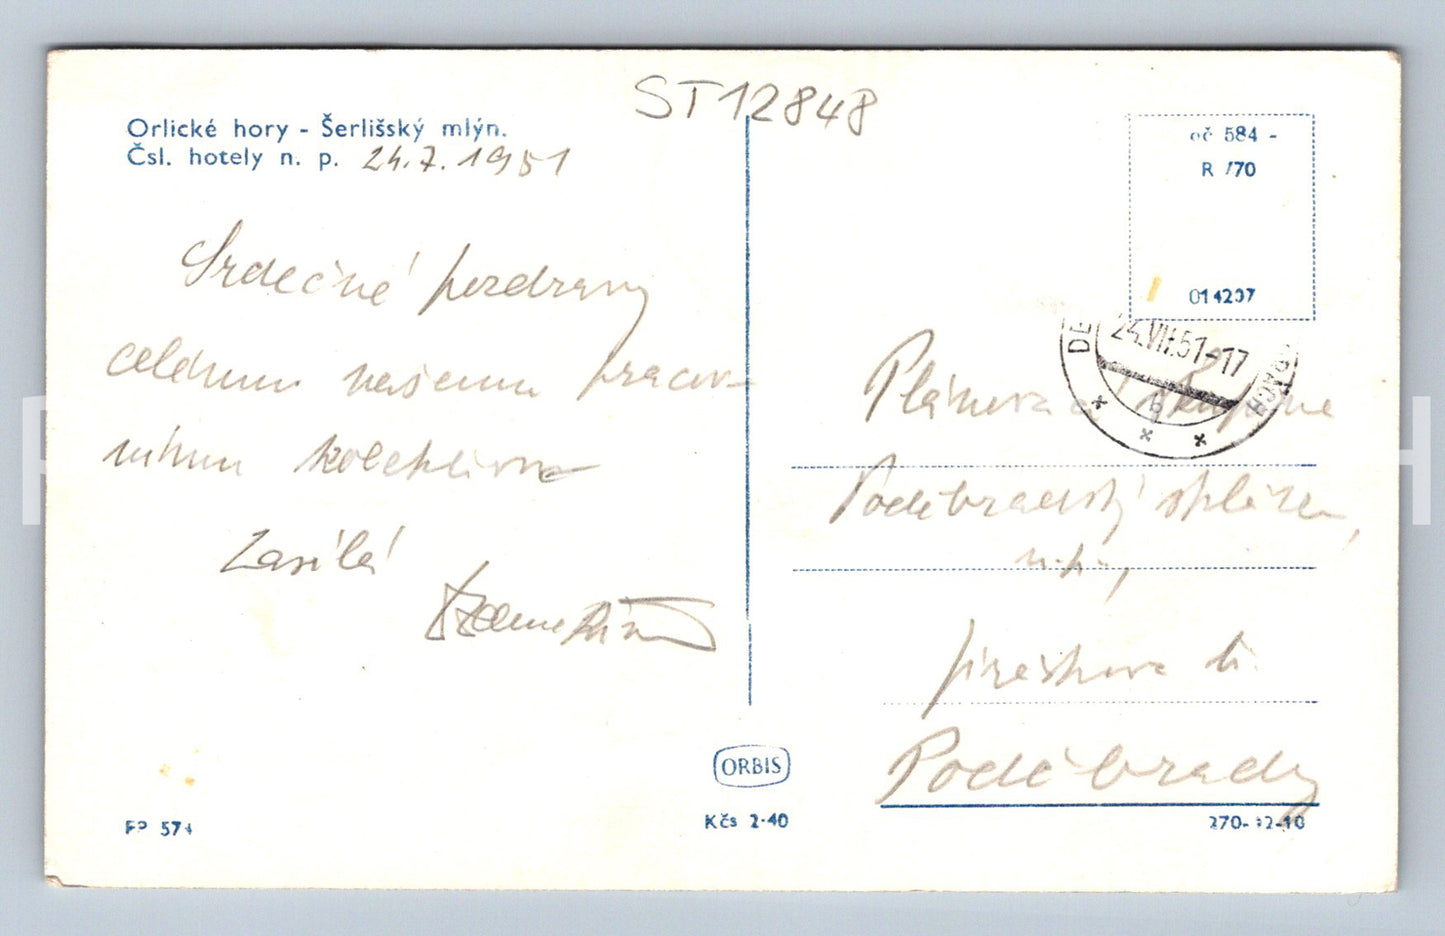 ST12848
Orlické hory - Šerlišský mlýn.
Čsl. hotely n. p. 24.7.1951
Srdečné pozdravy
celému našemu pracov-
nímu kolektivu
Zasílá
oč 584 -
R /70
014207
24.VII.51-17
b
Plánovací skupině
Poděbradský skláren,
n.p.,
Jiráskova
Poděbrady
ORBIS
FP 574
Kčs 2·40
270-12-10